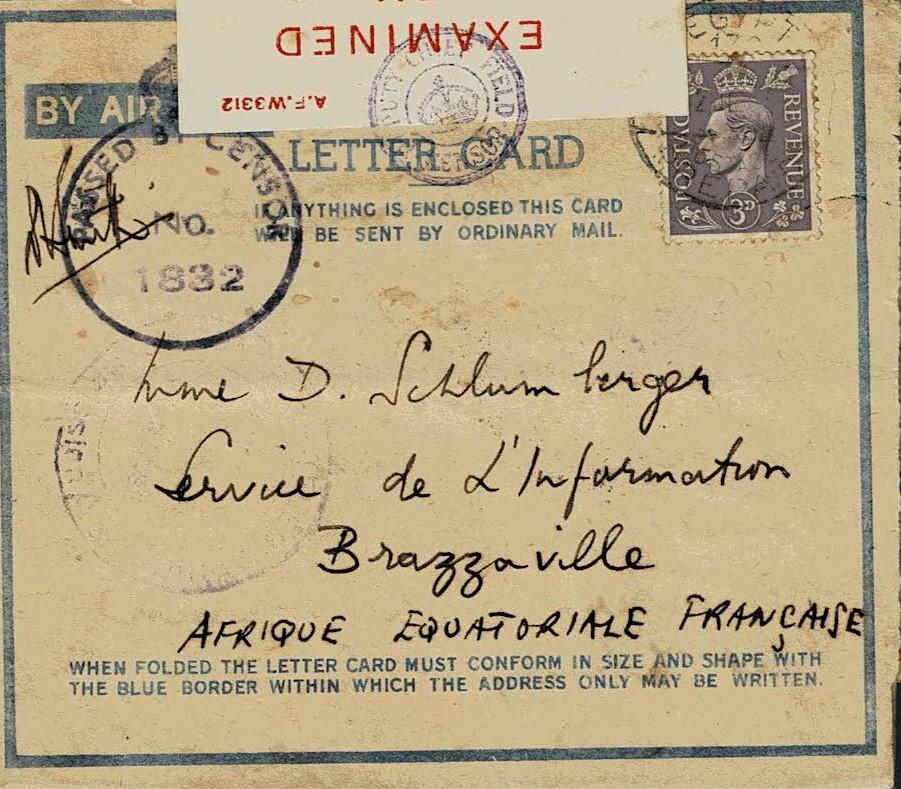 EXAMINED
A.F.W3312
DEPUTY CHIEF FIELD CENSOR
BY AIR
LETTER CARD
IF ANYTHING IS ENCLOSED THIS CARD
WILL BE SENT BY ORDINARY MAIL.
PASSED BY CENSOR
No.
1832
POSTAGE REVENUE
3D
Mme D. Schlumberger
Service de L'Information
Brazzaville
AFRIQUE EQUATORIALE FRANÇAISE
WHEN FOLDED THE LETTER CARD MUST CONFORM IN SIZE AND SHAPE WITH
THE BLUE BORDER WITHIN WHICH THE ADDRESS ONLY MAY BE WRITTEN.